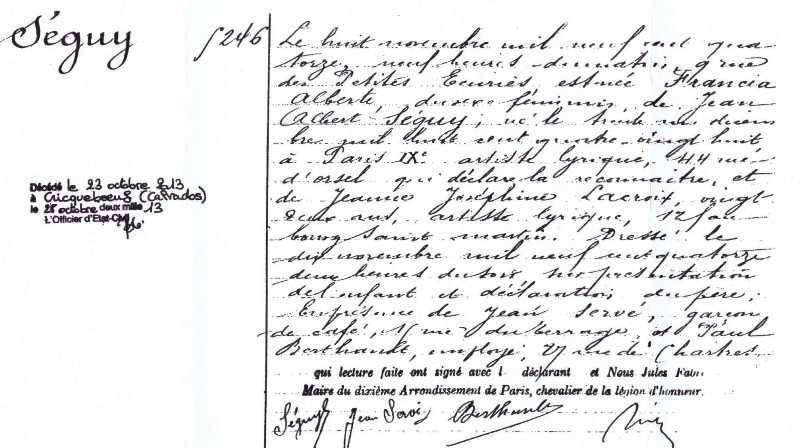 Séguy
5246
Le huit novembre mil neuf cent qua-
torze, neuf heures du matin, 9 rue
des Petites Ecuries, est née Francia
Alberte, du sexe féminin, de Jean
Albert Séguy, né le trente un décem-
bre mil huit cent quatre-vingt huit
à Paris IXe artiste lyrique, 44 rue
d'orsel qui déclare la reconnaître, et
de Jeanne Joséphine Lacroix, vingt
deux ans, artiste lyrique, 12 fau-
bourg Saint martin. Dressé le
dix novembre mil neuf cent quatorze
deux heures du soir sur présentation
de l'enfant et déclaration du père;
En présence de Jean Servé, garçon
de café, rue du terrage, et Paul
Berthault, employé, 27 rue de Chartres
qui lecture faite ont signé avec l déclarant et Nous Jules
Maire du dixième Arrondissement de Paris, chevalier de la légion d'honneur.
Séguy Jean Servé Berthault
Décédé le 23 octobre 2013
à Cricqueboeuf (Calvados)
le 28 octobre deux mille 13
L'Officier d'Etat-Civil